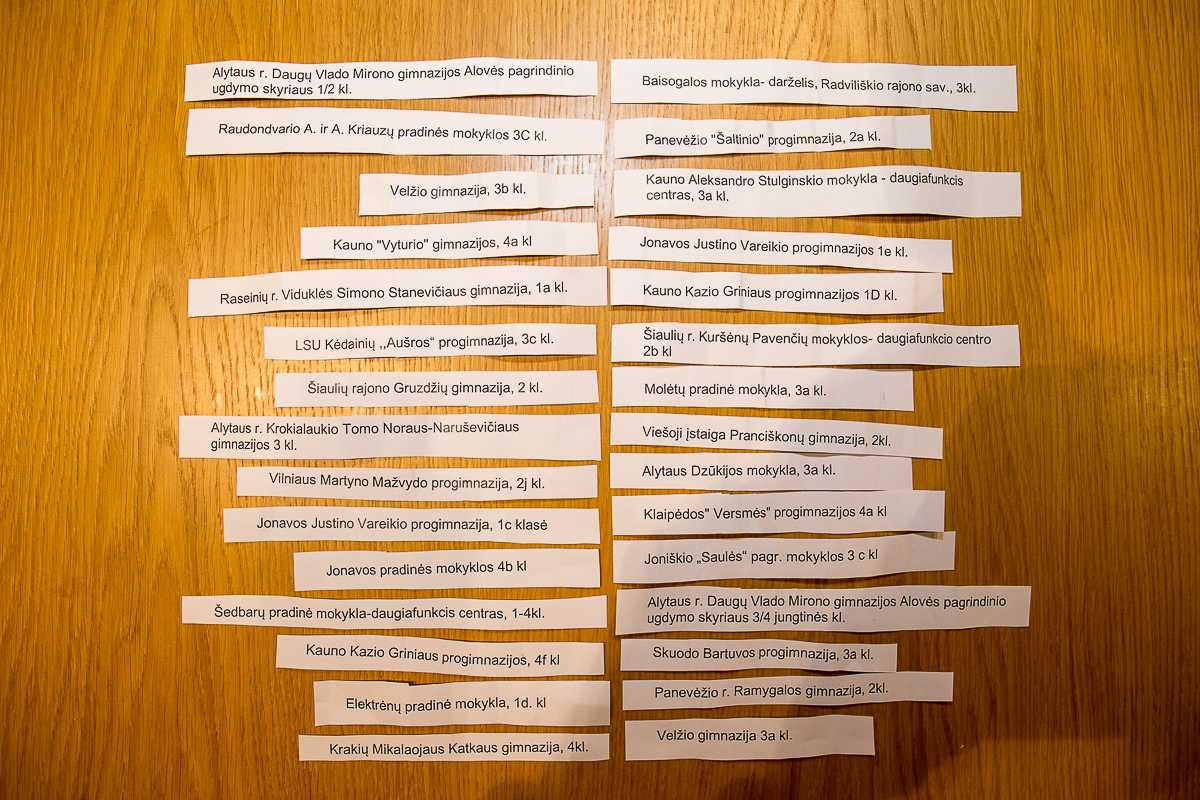 Alytaus r. Daugų Vlado Mirono gimnazijos Alovės pagrindinio
ugdymo skyriaus 1/2 kl.
Raudondvario A. ir A. Kriauzų pradinės mokyklos 3C kl.
Velžio gimnazija, 3b kl.
Kauno "Vyturio" gimnazijos, 4a kl
Raseinių r. Viduklės Simono Stanevičiaus gimnazija, 1a kl.
LSU Kėdainių ,,Aušros“ progimnazija, 3c kl.
Šiaulių rajono Gruzdžių gimnazija, 2 kl.
Alytaus r. Krokialaukio Tomo Noraus-Naruševičiaus
gimnazijos 3 kl.
Vilniaus Martyno Mažvydo progimnazija, 2j kl.
Jonavos Justino Vareikio progimnazija, 1c klasė
Jonavos pradinės mokyklos 4b kl
Šedbarų pradinė mokykla-daugiafunkcis centras, 1-4kl.
Kauno Kazio Griniaus progimnazijos, 4f kl
Elektrėnų pradinė mokykla, 1d. kl
Krakių Mikalaojaus Katkaus gimnazija, 4kl.
Baisogalos mokykla- darželis, Radviliškio rajono sav., 3kl.
Panevėžio "Šaltinio" progimnazija, 2a kl.
Kauno Aleksandro Stulginskio mokykla - daugiafunkcis
centras, 3a kl.
Jonavos Justino Vareikio progimnazijos 1e kl.
Kauno Kazio Griniaus progimnazijos 1D kl.
Šiaulių r. Kuršėnų Pavenčių mokyklos- daugiafunkcio centro
2b kl
Molėtų pradinė mokykla, 3a kl.
Viešoji įstaiga Pranciškonų gimnazija, 2kl.
Alytaus Dzūkijos mokykla, 3a kl.
Klaipėdos" Versmės" progimnazijos 4a kl
Joniškio „Saulės“ pagr. mokyklos 3 c kl
Alytaus r. Daugų Vlado Mirono gimnazijos Alovės pagrindinio
ugdymo skyriaus 3/4 jungtinės kl.
Skuodo Bartuvos progimnazija, 3a kl.
Panevėžio r. Ramygalos gimnazija, 2kl.
Velžio gimnazija 3a kl.